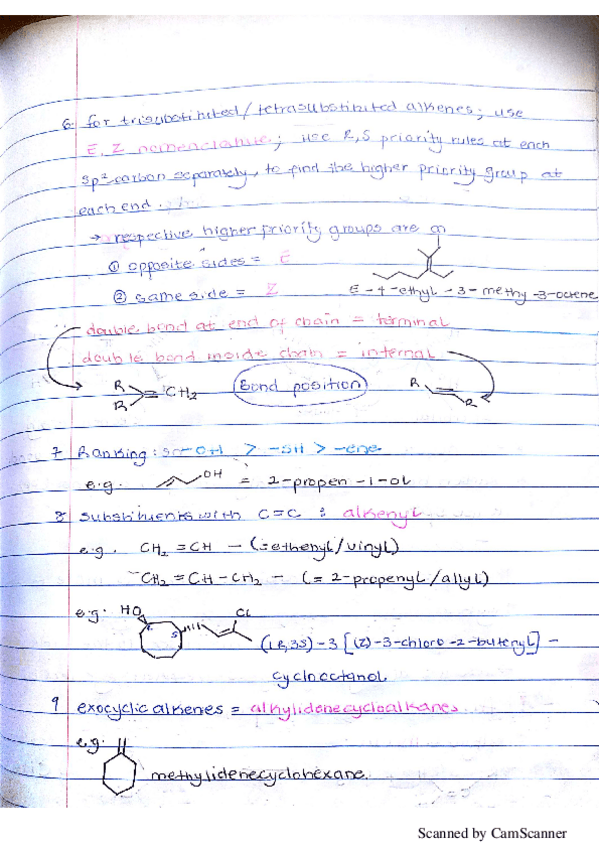 6 for trisubstituted/tetrasubstituted alkenes; use
E, Z nomenclature; use R,S priority rules at each
sp² carbon separately, to find the higher priority group at
each end.
→ respective higher priority groups are on
① opposite sides = E
② same side = Z
E-4-ethyl-3-methy-3-octene
double bond at end of chain = terminal
double bond inside chain = internal
R
R
=CH₂
Bond position
R
R
7 Ranking: -OH > -SH > -ene
e.g. OH = 2-propen-1-ol
8 substituents with C=C : alkenyl
e.g. CH₂=CH- (=ethenyl/vinyl)
CH₂=CH-CH₂- (=2-propenyl/allyl)
e.g. HO R S Cl
(1R,3S)-3[(Z)-3-chloro-2-butenyl]-
cyclooctanol
9 exocyclic alkenes = alkylidenecycloalkanes
e.g.
methylidenecyclohexane.
Scanned by CamScanner